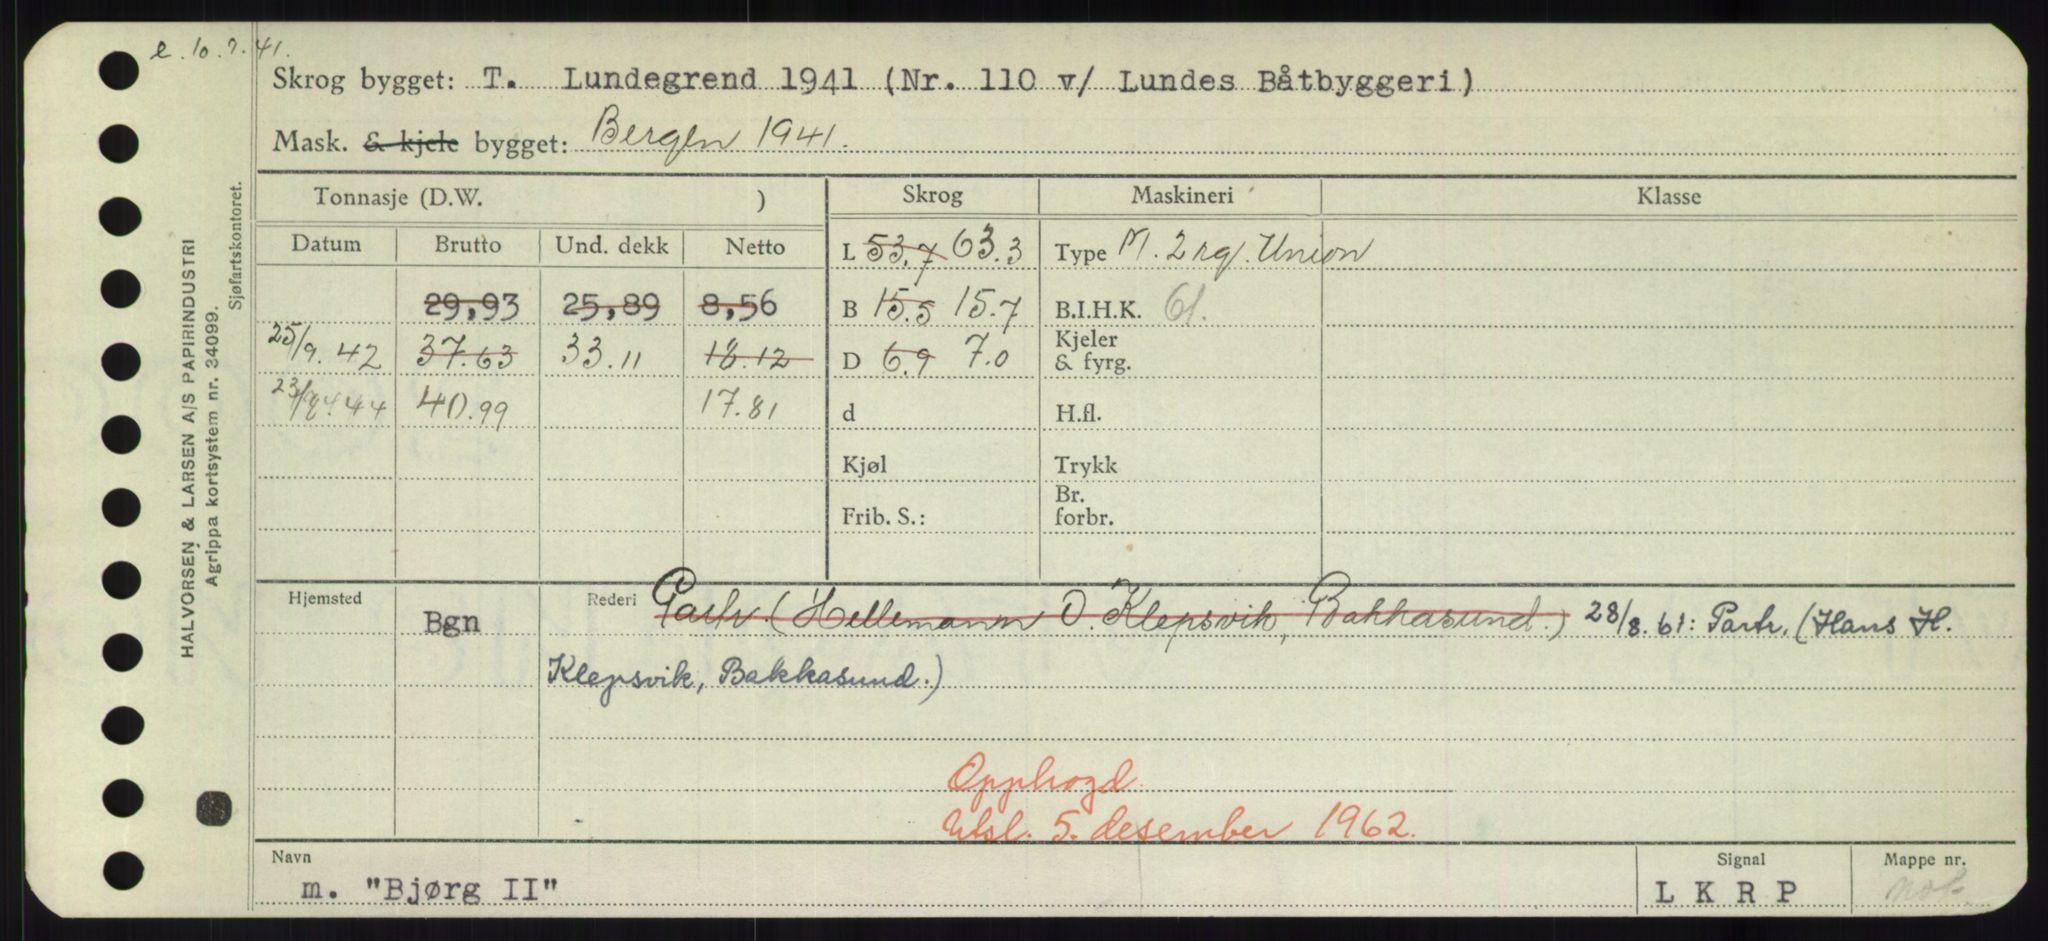 e. 10.7.41.
Skrog bygget: T. Lundegrend 1941 (Nr. 110 v/ Lundes Båtbyggeri)
Mask. & kjele bygget: Bergen 1941.
Tonnasje (D.W. ) Skrog Maskineri Klasse
Datum Brutto Und. dekk Netto
L 53,7 63.3 Type M. 2 rq. Union
29,93 25,89 8,56 B 15.5 15.7 B.I.H.K. 61.
25/9.42 37.63 33.11 18.12 D 6.9 7.0 Kjeler & fyrg.
44 40.99 17.81 d H.fl.
Kjøl Trykk
Frib. S.: Br. forbr.
Hjemsted Bgn Rederi Partr. (Hellemann O. Klepsvik, Bakkasund.) 28/8.61: Partr. (Hans H.
Klepsvik, Bakkasund.)
Opphogd.
Utsl. 5. desember 1962.
Navn Signal Mappe nr.
m. "Bjørg II" L K R P
HALVORSEN & LARSEN A/S PAPIRINDUSTRI
Agrippa kortsystem nr. 34099.
Sjøfartskontoret.